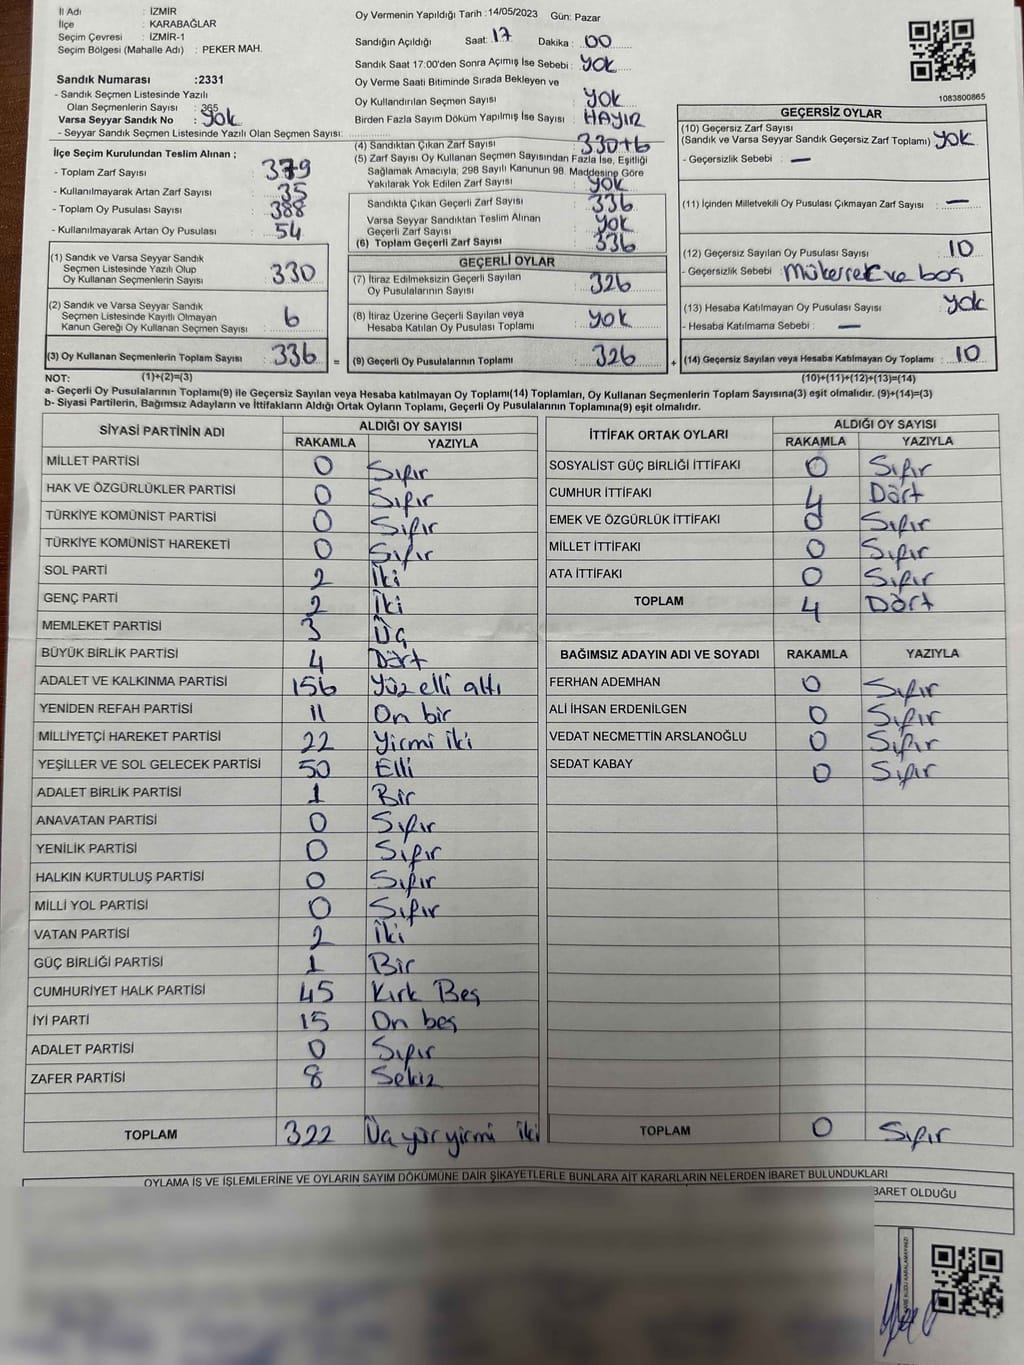 İl Adı : İZMİR
İlçe : KARABAĞLAR
Seçim Çevresi : İZMİR-1
Seçim Bölgesi (Mahalle Adı) : PEKER MAH.
Sandık Numarası :2331
- Sandık Seçmen Listesinde Yazılı
Olan Seçmenlerin Sayısı : 365
Varsa Seyyar Sandık No : yok
- Seyyar Sandık Seçmen Listesinde Yazılı Olan Seçmen Sayısı:
İlçe Seçim Kurulundan Teslim Alınan ;
- Toplam Zarf Sayısı : 379
- Kullanılmayarak Artan Zarf Sayısı : 35
- Toplam Oy Pusulası Sayısı : 388
- Kullanılmayarak Artan Oy Pusulası : 54
(1) Sandık ve Varsa Seyyar Sandık
Seçmen Listesinde Yazılı Olup
Oy Kullanan Seçmenlerin Sayısı : 330
(2) Sandık ve Varsa Seyyar Sandık
Seçmen Listesinde Kayıtlı Olmayan
Kanun Gereği Oy Kullanan Seçmen Sayısı : 6
(3) Oy Kullanan Seçmenlerin Toplam Sayısı : 336 =
Oy Vermenin Yapıldığı Tarih :14/05/2023 Gün: Pazar
Sandığın Açıldığı Saat: 17 Dakika : 00
Sandık Saat 17:00'den Sonra Açımış İse Sebebi : yok
Oy Verme Saati Bitiminde Sırada Bekleyen ve
Oy Kullandırılan Seçmen Sayısı : yok
Birden Fazla Sayım Döküm Yapılmış İse Sayısı : HAYIR
(4) Sandıktan Çıkan Zarf Sayısı : 330+6
(5) Zarf Sayısı Oy Kullanan Seçmen Sayısından Fazla İse, Eşitliği
Sağlamak Amacıyla; 298 Sayılı Kanunun 98. Maddesine Göre
Yakılarak Yok Edilen Zarf Sayısı : yok
Sandıkta Çıkan Geçerli Zarf Sayısı : 336
Varsa Seyyar Sandıktan Teslim Alınan
Geçerli Zarf Sayısı : yok
(6) Toplam Geçerli Zarf Sayısı : 336
GEÇERLİ OYLAR
(7) İtiraz Edilmeksizin Geçerli Sayılan
Oy Pusulalarının Sayısı : 326
(8) İtiraz Üzerine Geçerli Sayılan veya
Hesaba Katılan Oy Pusulası Toplamı : yok
(9) Geçerli Oy Pusulalarının Toplamı : 326 +
1083800865
GEÇERSİZ OYLAR
(10) Geçersiz Zarf Sayısı
(Sandık ve Varsa Seyyar Sandık Geçersiz Zarf Toplamı) yok
- Geçersizlik Sebebi : —
(11) İçinden Milletvekili Oy Pusulası Çıkmayan Zarf Sayısı : —
(12) Geçersiz Sayılan Oy Pusulası Sayısı : 10
- Geçersizlik Sebebi : Mükerrek ve boş
(13) Hesaba Katılmayan Oy Pusulası Sayısı : yok
- Hesaba Katılmama Sebebi : —
(14) Geçersiz Sayılan veya Hesaba Katılmayan Oy Toplamı : 10
NOT: (1)+(2)=(3) (10)+(11)+(12)+(13)=(14)
a- Geçerli Oy Pusulalarının Toplamı(9) ile Geçersiz Sayılan veya Hesaba katılmayan Oy Toplamı(14) Toplamları, Oy Kullanan Seçmenlerin Toplam Sayısına(3) eşit olmalıdır. (9)+(14)=(3)
b- Siyasi Partilerin, Bağımsız Adayların ve İttifakların Aldığı Ortak Oyların Toplamı, Geçerli Oy Pusulalarının Toplamına(9) eşit olmalıdır.
SİYASİ PARTİNİN ADI ALDIĞI OY SAYISI
RAKAMLA YAZIYLA
MİLLET PARTİSİ 0 Sıfır
HAK VE ÖZGÜRLÜKLER PARTİSİ 0 Sıfır
TÜRKİYE KOMÜNİST PARTİSİ 0 Sıfır
TÜRKİYE KOMÜNİST HAREKETİ 0 Sıfır
SOL PARTİ 2 İki
GENÇ PARTİ 2 İki
MEMLEKET PARTİSİ 3 Üç
BÜYÜK BİRLİK PARTİSİ 4 Dört
ADALET VE KALKINMA PARTİSİ 156 Yüz elli altı
YENİDEN REFAH PARTİSİ 11 On bir
MİLLİYETÇİ HAREKET PARTİSİ 22 Yirmi iki
YEŞİLLER VE SOL GELECEK PARTİSİ 50 Elli
ADALET BİRLİK PARTİSİ 1 Bir
ANAVATAN PARTİSİ 0 Sıfır
YENİLİK PARTİSİ 0 Sıfır
HALKIN KURTULUŞ PARTİSİ 0 Sıfır
MİLLİ YOL PARTİSİ 0 Sıfır
VATAN PARTİSİ 2 İki
GÜÇ BİRLİĞİ PARTİSİ 1 Bir
CUMHURİYET HALK PARTİSİ 45 Kırk Beş
İYİ PARTİ 15 On beş
ADALET PARTİSİ 0 Sıfır
ZAFER PARTİSİ 8 Sekiz
TOPLAM 322 Üç yüz yirmi iki
İTTİFAK ORTAK OYLARI ALDIĞI OY SAYISI
RAKAMLA YAZIYLA
SOSYALİST GÜÇ BİRLİĞİ İTTİFAKI 0 Sıfır
CUMHUR İTTİFAKI 4 Dört
EMEK VE ÖZGÜRLÜK İTTİFAKI 0 Sıfır
MİLLET İTTİFAKI 0 Sıfır
ATA İTTİFAKI 0 Sıfır
TOPLAM 4 Dört
BAĞIMSIZ ADAYIN ADI VE SOYADI RAKAMLA YAZIYLA
FERHAN ADEMHAN 0 Sıfır
ALİ İHSAN ERDENİLGEN 0 Sıfır
VEDAT NECMETTİN ARSLANOĞLU 0 Sıfır
SEDAT KABAY 0 Sıfır
TOPLAM 0 Sıfır
OYLAMA İŞ VE İŞLEMLERİNE VE OYLARIN SAYIM DÖKÜMÜNE DAİR ŞİKAYETLERLE BUNLARA AİT KARARLARIN NELERDEN İBARET BULUNDUKLARI
BARET OLDUĞU